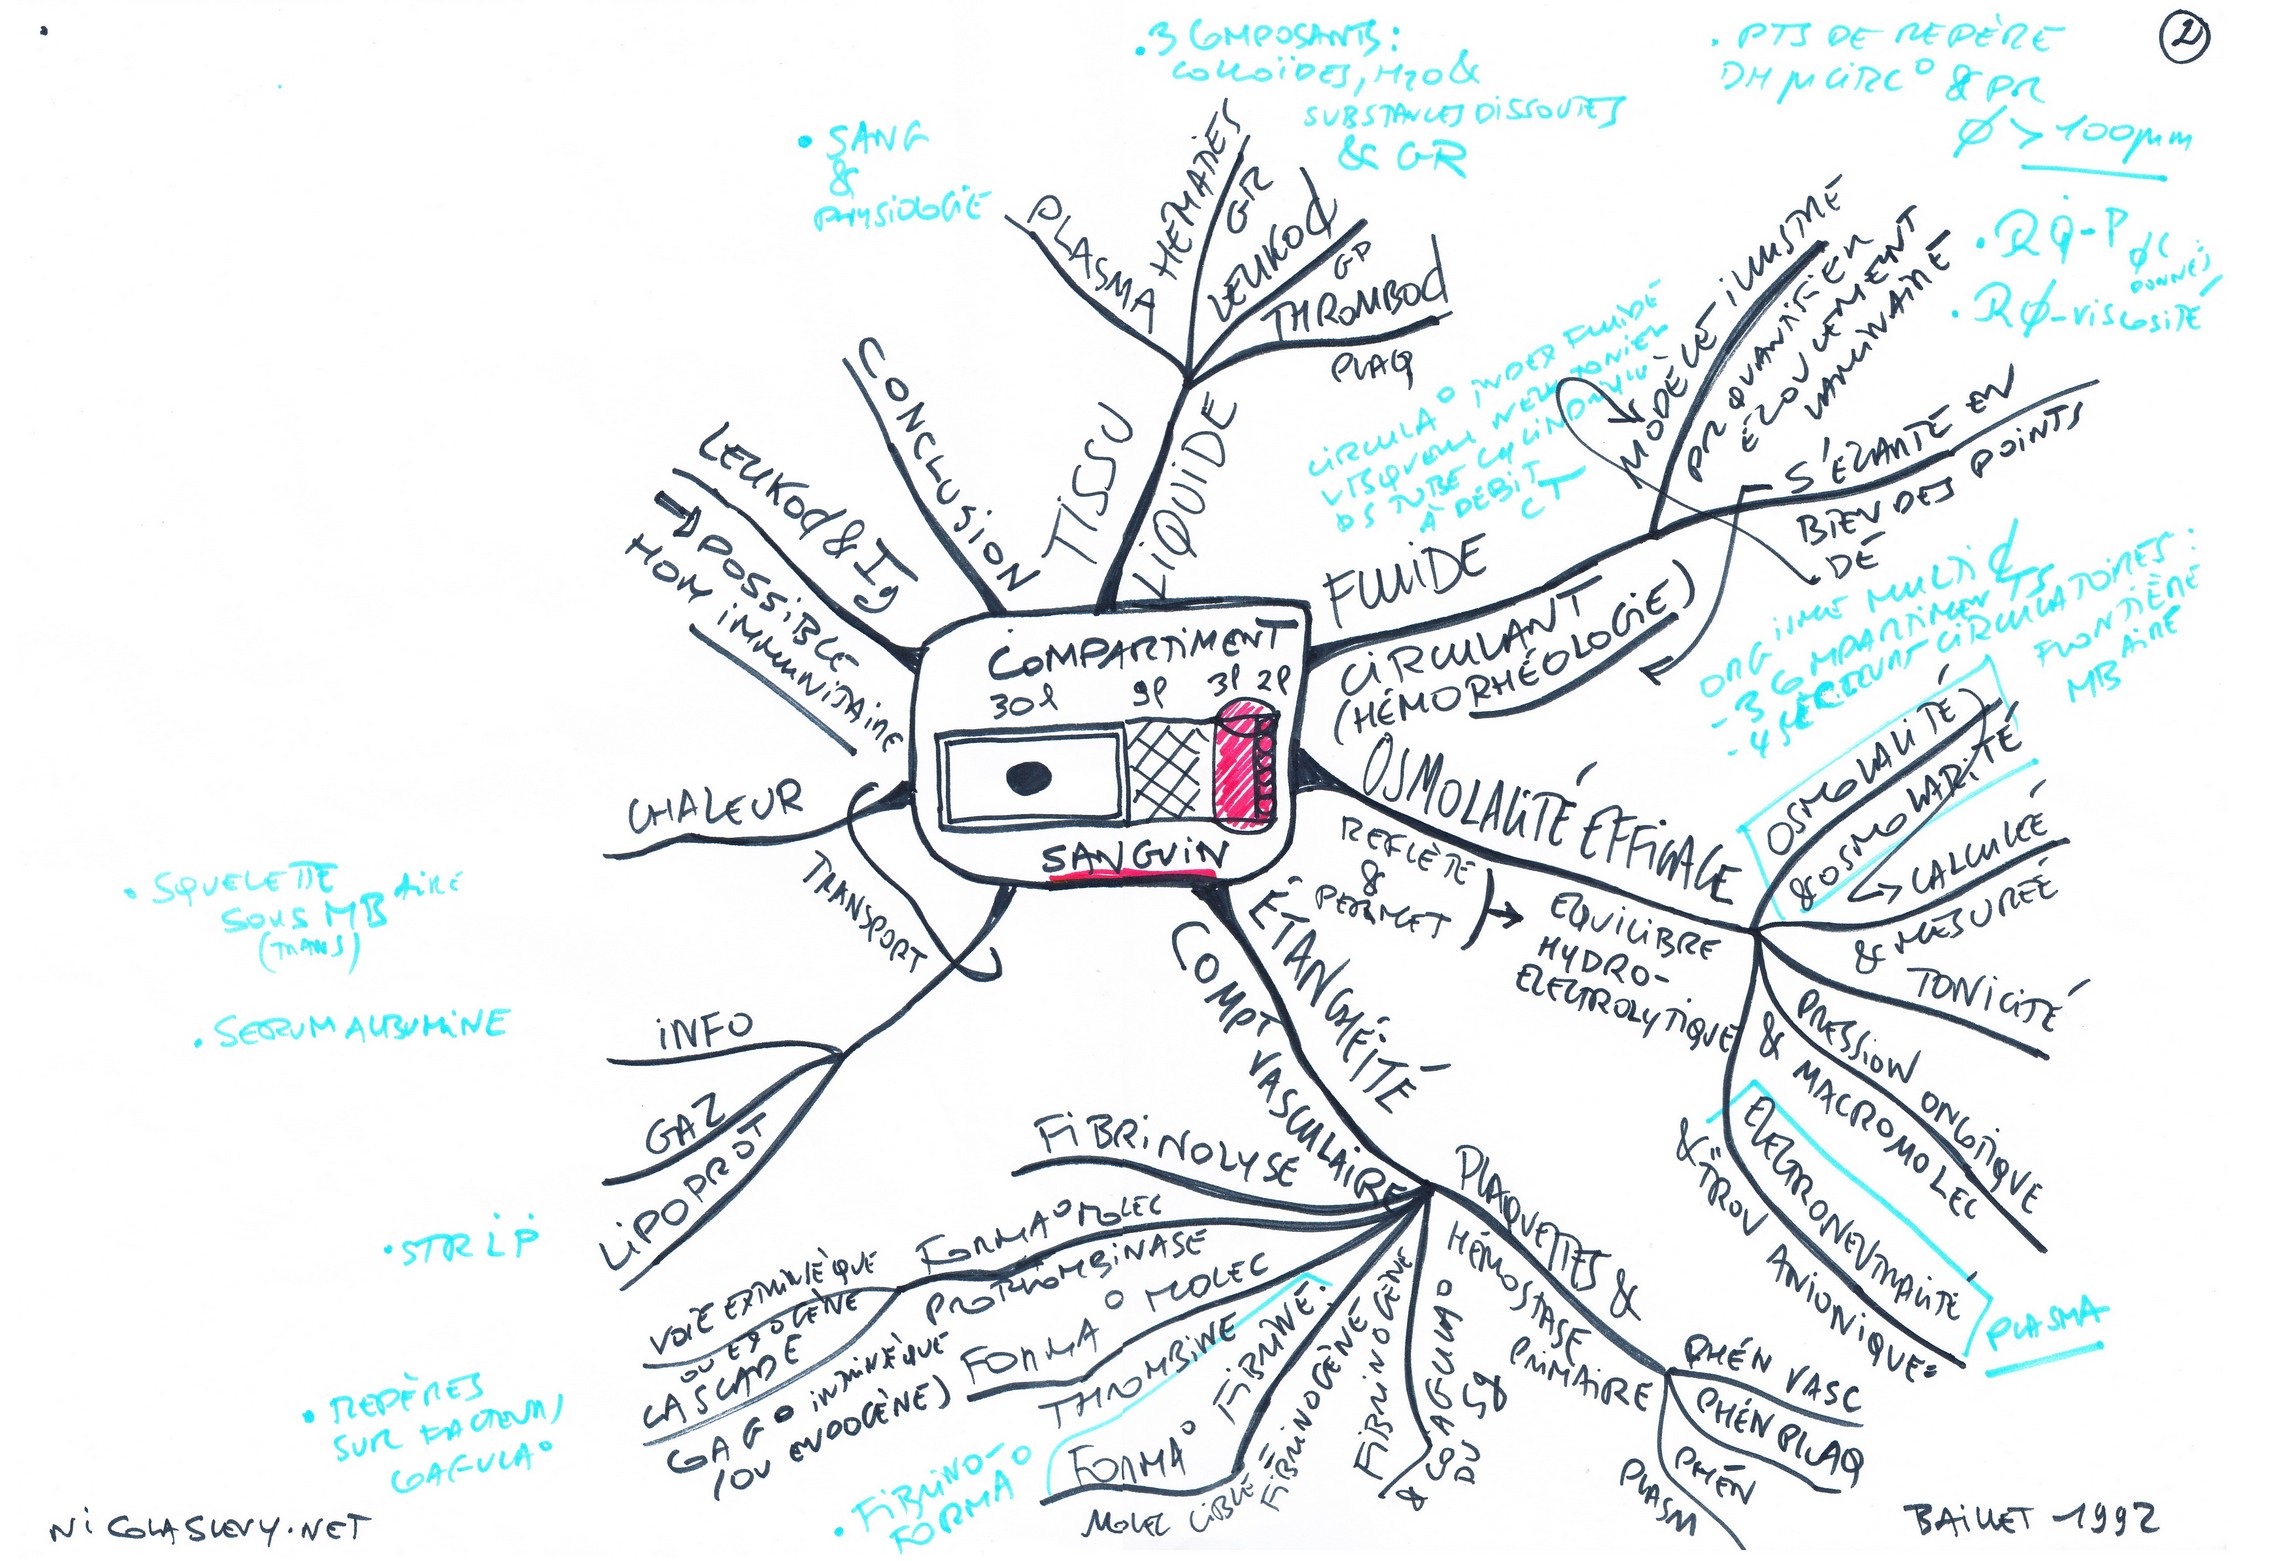 2
• 3 COMPOSANTS:
COLLOÏDES, H2O &
SUBSTANCES DISSOUTES
& GR
• PTS DE REPÈRE
DH µCIRC° & PR
Ø > 100µm
• RQ-P
ØC
DONNÉS
• RØ-VISCOSITÉ
• SANG
&
PHYSIOLOGIE
PLASMA
HÉMATIES
GR
LEUKO
GP
THROMBO
PLAQ
TISSU
LIQUIDE
CONCLUSION
LEUKO & Ig
→ POSSIBLE
HOM IMMUNITAIRE
CIRCULA° INDEX FLUIDE
VISQUEUX NEWTONIEN
DS TUBE CYLINDRIQU
À DÉBIT
CT
MODÈLE ILLUSTRÉ
PR QUANTIFIER
ÉCOULEMENT
LAMINAIRE
S'ÉCARTE EN
BIEN DES POINTS
DE
FLUIDE
CIRCULANT
(HÉMORHÉOLOGIE)
- 3 COMPARTIMENTS
CIRCULATOIRES:
FRONTIÈRE
MB AIRE
COMPARTIMENT
30l 9l 3l 2l
SANGUIN
OSMOLALITÉ EFFICACE
REFLÈTE
&
PERMET
→ EQUILIBRE
HYDRO-
ELECTROLYTIQUE
OSMOLALITÉ
& OSMOLARITÉ
CALCULÉE
& MESURÉE
TONICITÉ
PRESSION ONCOTIQUE
& MACROMOLEC
ELECTRONEUTRALITÉ
& "TROU ANIONIQUE"
PLASMA
CHALEUR
TRANSPORT
INFO
GAZ
LIPOPROT
• SQUELETTE
SOUS MB AIRE
(TRANS)
• SERUM ALBUMINE
• STR LP
• REPÈRES
SUR FACTEURS
COAGULA°
ÉTANCHÉITÉ
COMPT VASCULAIRE
FIBRINOLYSE
FORMA° MOLEC
PROTHROMBINASE
VOIE EXTRINSÈQUE
OU EXOGÈNE
CASCADE
COAG° INTRINSÈQUE
(OU ENDOGÈNE)
FORMA° MOLEC
THROMBINE
FORMA° FIBRINE:
MOLEC CIBLE = FIBRINOGÈNE
FIBRINOGÈNE
& COAGULA°
DU SG
• FIBRINO-
FORMA°
PLAQUETTES &
HÉMOSTASE
PRIMAIRE
PHÉN VASC
PHÉN PLAQ
PHÉN
PLASM
NICOLASLEVY.NET
BAILLET 1992